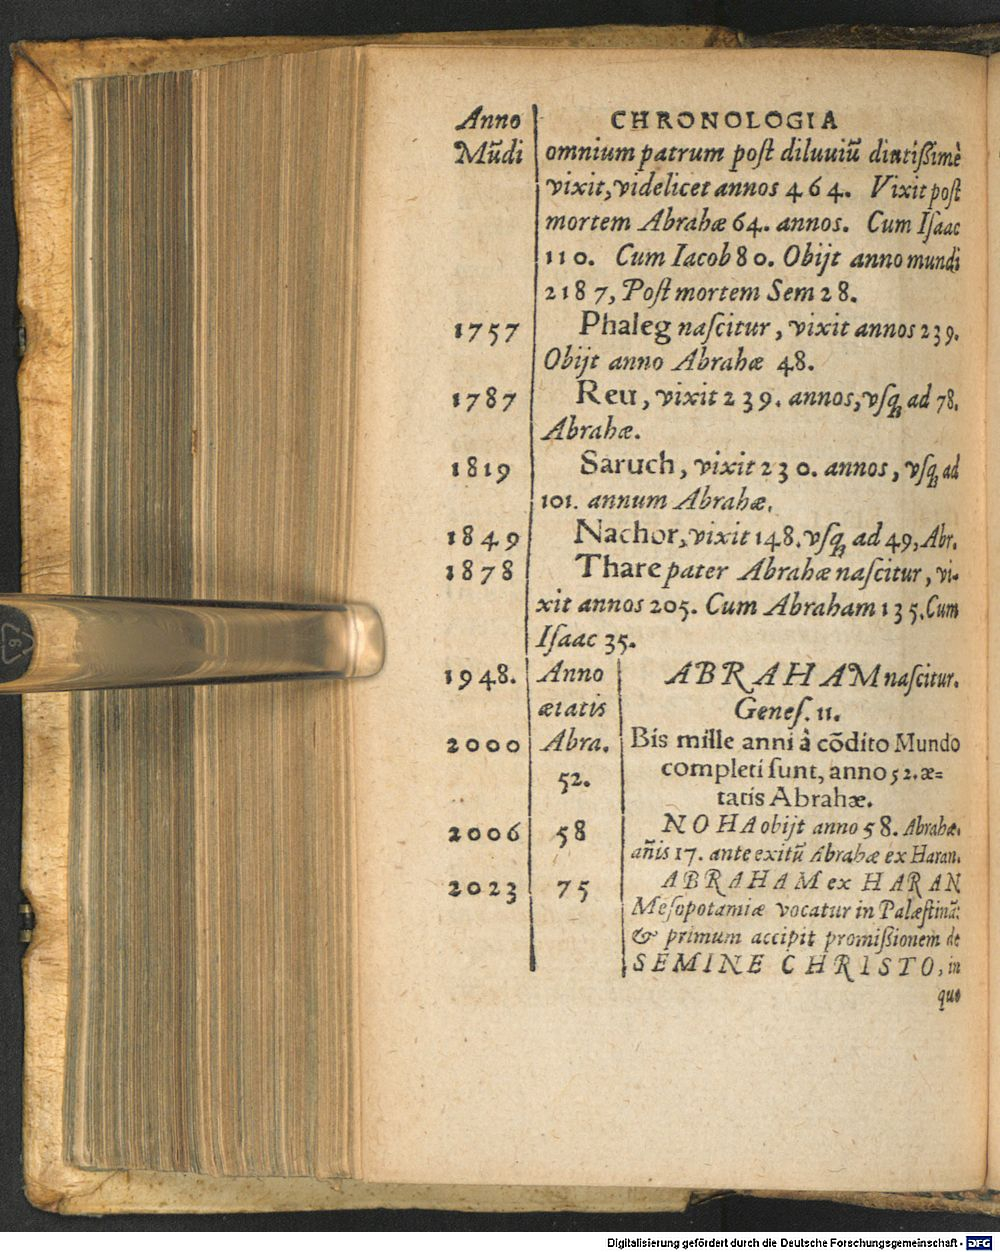 CHRONOLOGIA
Anno
Mũdi
omnium patrum post diluuiũ diutißimè
vixit, videlicet annos 464. Vixit post
mortem Abrahæ 64. annos. Cum Isaac
110. Cum Iacob 80. Obijt anno mundi
2187, Post mortem Sem 28.
1757 Phaleg nascitur, vixit annos 239.
Obijt anno Abrahæ 48.
1787 Reu, vixit 239. annos, vsq; ad 78.
Abrahæ.
1819 Saruch, vixit 230. annos, vsq; ad
101. annum Abrahæ.
1849 Nachor, vixit 148. vsq; ad 49, Abr.
1878 Thare pater Abrahæ nascitur, vi-
xit annos 205. Cum Abraham 135. Cum
Isaac 35.
1948. Anno ABRAHAM nascitur.
ætatis Genes. 11.
2000 Abra. Bis mille anni à cõdito Mundo
52. completi sunt, anno 52. æ=
tatis Abrahæ.
2006 58 NOHA obijt anno 58. Abrahæ,
añis 17. ante exitũ Abrahæ ex Haran.
2023 75 ABRAHAM ex HARAN
Mesopotamiæ vocatur in Palæstinã:
& primum accipit promißionem de
SEMINE CHRISTO, in
quo
Digitalisierung gefördert durch die Deutsche Forschungsgemeinschaft - DFG